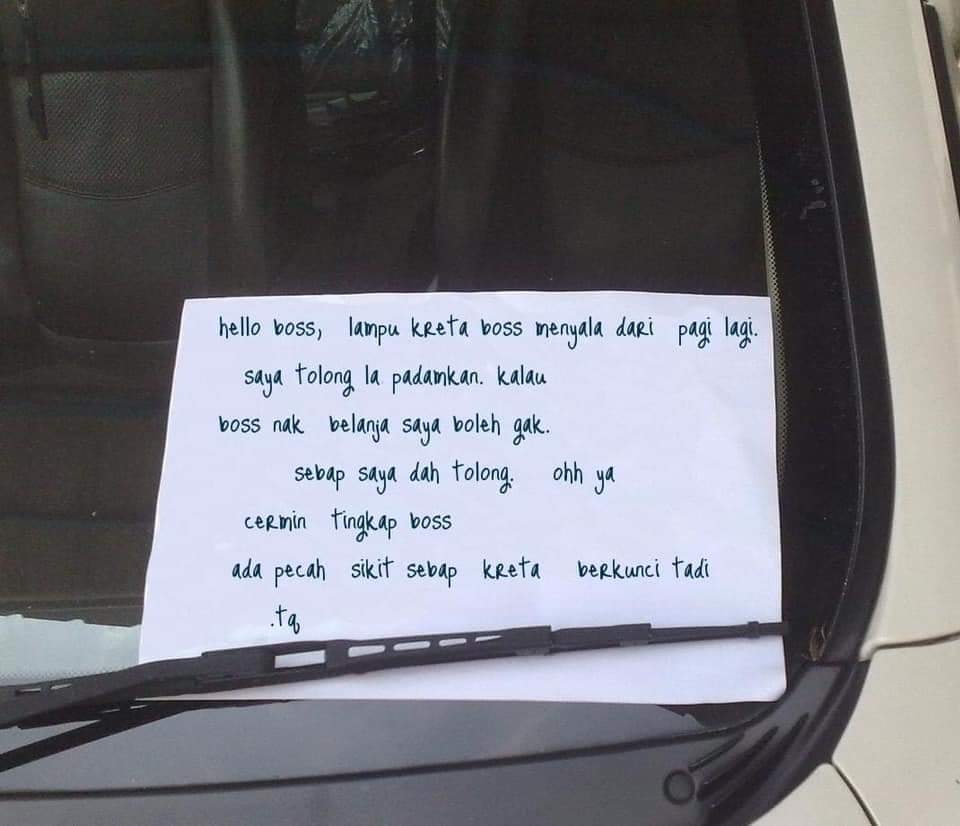 hello boss, lampu kreta boss menyala dari pagi lagi.
saya tolong la padamkan. kalau
boss nak belanja saya boleh gak.
sebap saya dah tolong. ohh ya
cermin tingkap boss
ada pecah sikit sebap kreta berkunci tadi
.tq